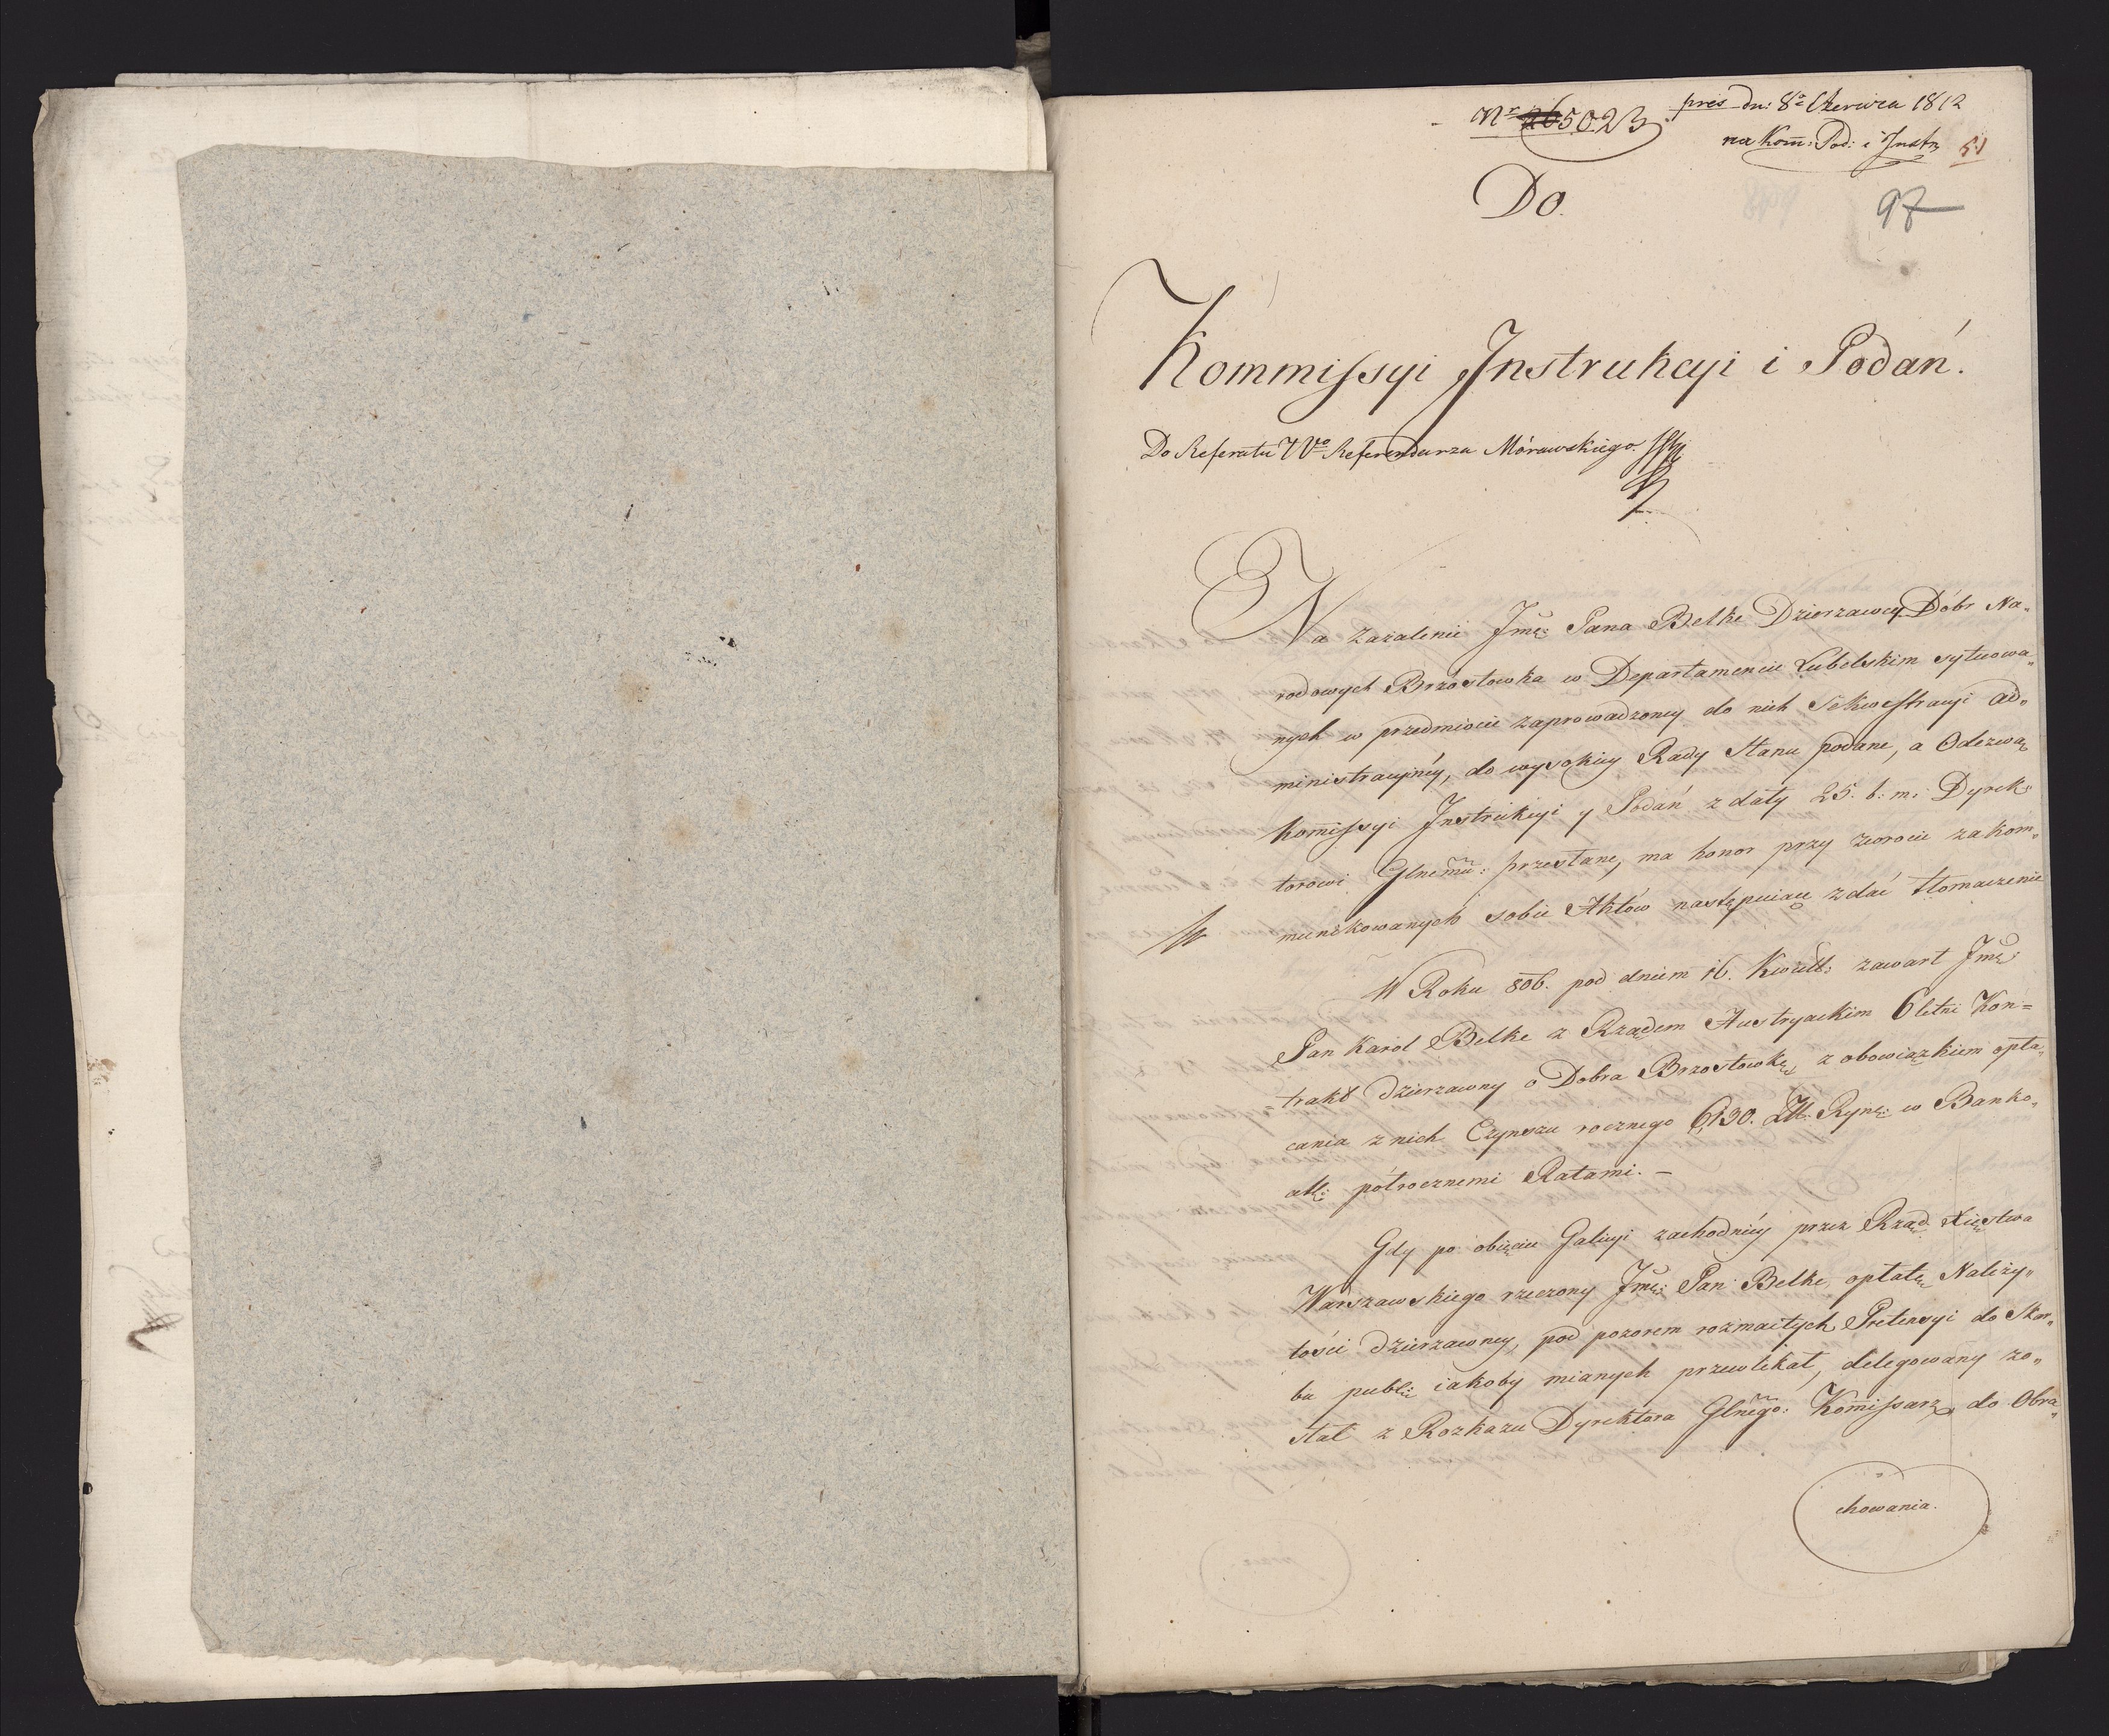 Nr 265023
pres dn: 8o Czerwca 1812
na Kom: Pod: i Instr
51
97
Do.
Kommissyi Instrukcyi i Podań.
Do Referatu JWo Referendarza Morawskiego.
Na zażalenie Jmc: Pana Belke Dzierzawcy Dóbr Na„
rodowych Brzostowka w Departamencie Lubelskim sytuowa„
nych w przedmiocie zaprowadzoney do nich Sekwestracyi ad„
ministracyiney, do wysokiey Rady Stanu podane, a Odezwą
Komissyi Instrukcyi y Podań z daty 25. b: m: Dyrek„
torowi Glnemu: przesłane, ma honor przy zwrocie zakom„
munikowanych sobie Aktów następuiące zdać tłomaczenie
W Roku 806. pod dniem 16. Kwiet: zawarł Jmc:
Pan Karol Belke z Rządem Austryackim 6 letni Kon=
=trakt dzierzawny o Dobra Brzostowkę, z obowiązkiem opła„
cania z nich Czynszu rocznego 6,130. Zł. Ryne: w Banko„
półrocznemi Ratami. —
Gdy po obięciu Galicyi zachodniey przez Rząd Xięstwa
Warszawskiego rzeczony Jmc: Pan Belke, opłatę Należy„
tości dzierzawney, pod pozorem rozmaitych Pretensyi do Skar„
bu publi: iakoby mianych przewlekał, delegowany zo„
stał z Rozkazu Dyrektora Glnego: Komissarz do Obra„
chowania.